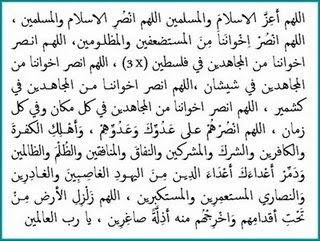 اللهم أَعِزَّ الاسلامَ والمسلمين اللهم انصُر الاسلام والمسلمين ،
اللهم انصُرْ اِخْوَانَنَا مِنَ المستضعفين والمظلومين، اللهم انصر
اخواننا من المجاهدين في فلسطين (3x) ، اللهم انصر اخواننا من
المجاهدين في شيشان ،اللهم انصر اخواننا من المجاهدين في
كشمير ، اللهم انصر اخواننا من المجاهدين في كل مكان وفي كل
زمان ، اللهم انْصُرْهُمْ على عَدُوِّكَ وَعَدُوِّهِمْ ، وَأَهْلِكِ الكَفَرَةَ
والكافرين والشركَ والمشركين والنفاق والمنافقين والظُّلَّمَ والظالمين
وَدَمِّرْ أَعْدَاءَكَ أَعْدَاءَ الدين من اليهودِ الغاصِبِينَ والغادِرِينَ
وَالنصاري المستعمِرِينَ والمستكبِرِين ، اللهم زَلْزِلِ الأرضَ مِنْ
تَحْتِ أقدامِهم وَاخْرِجْهُم منه أَذِلَّةً صَاغِرِينَ ، يا رب العالمين